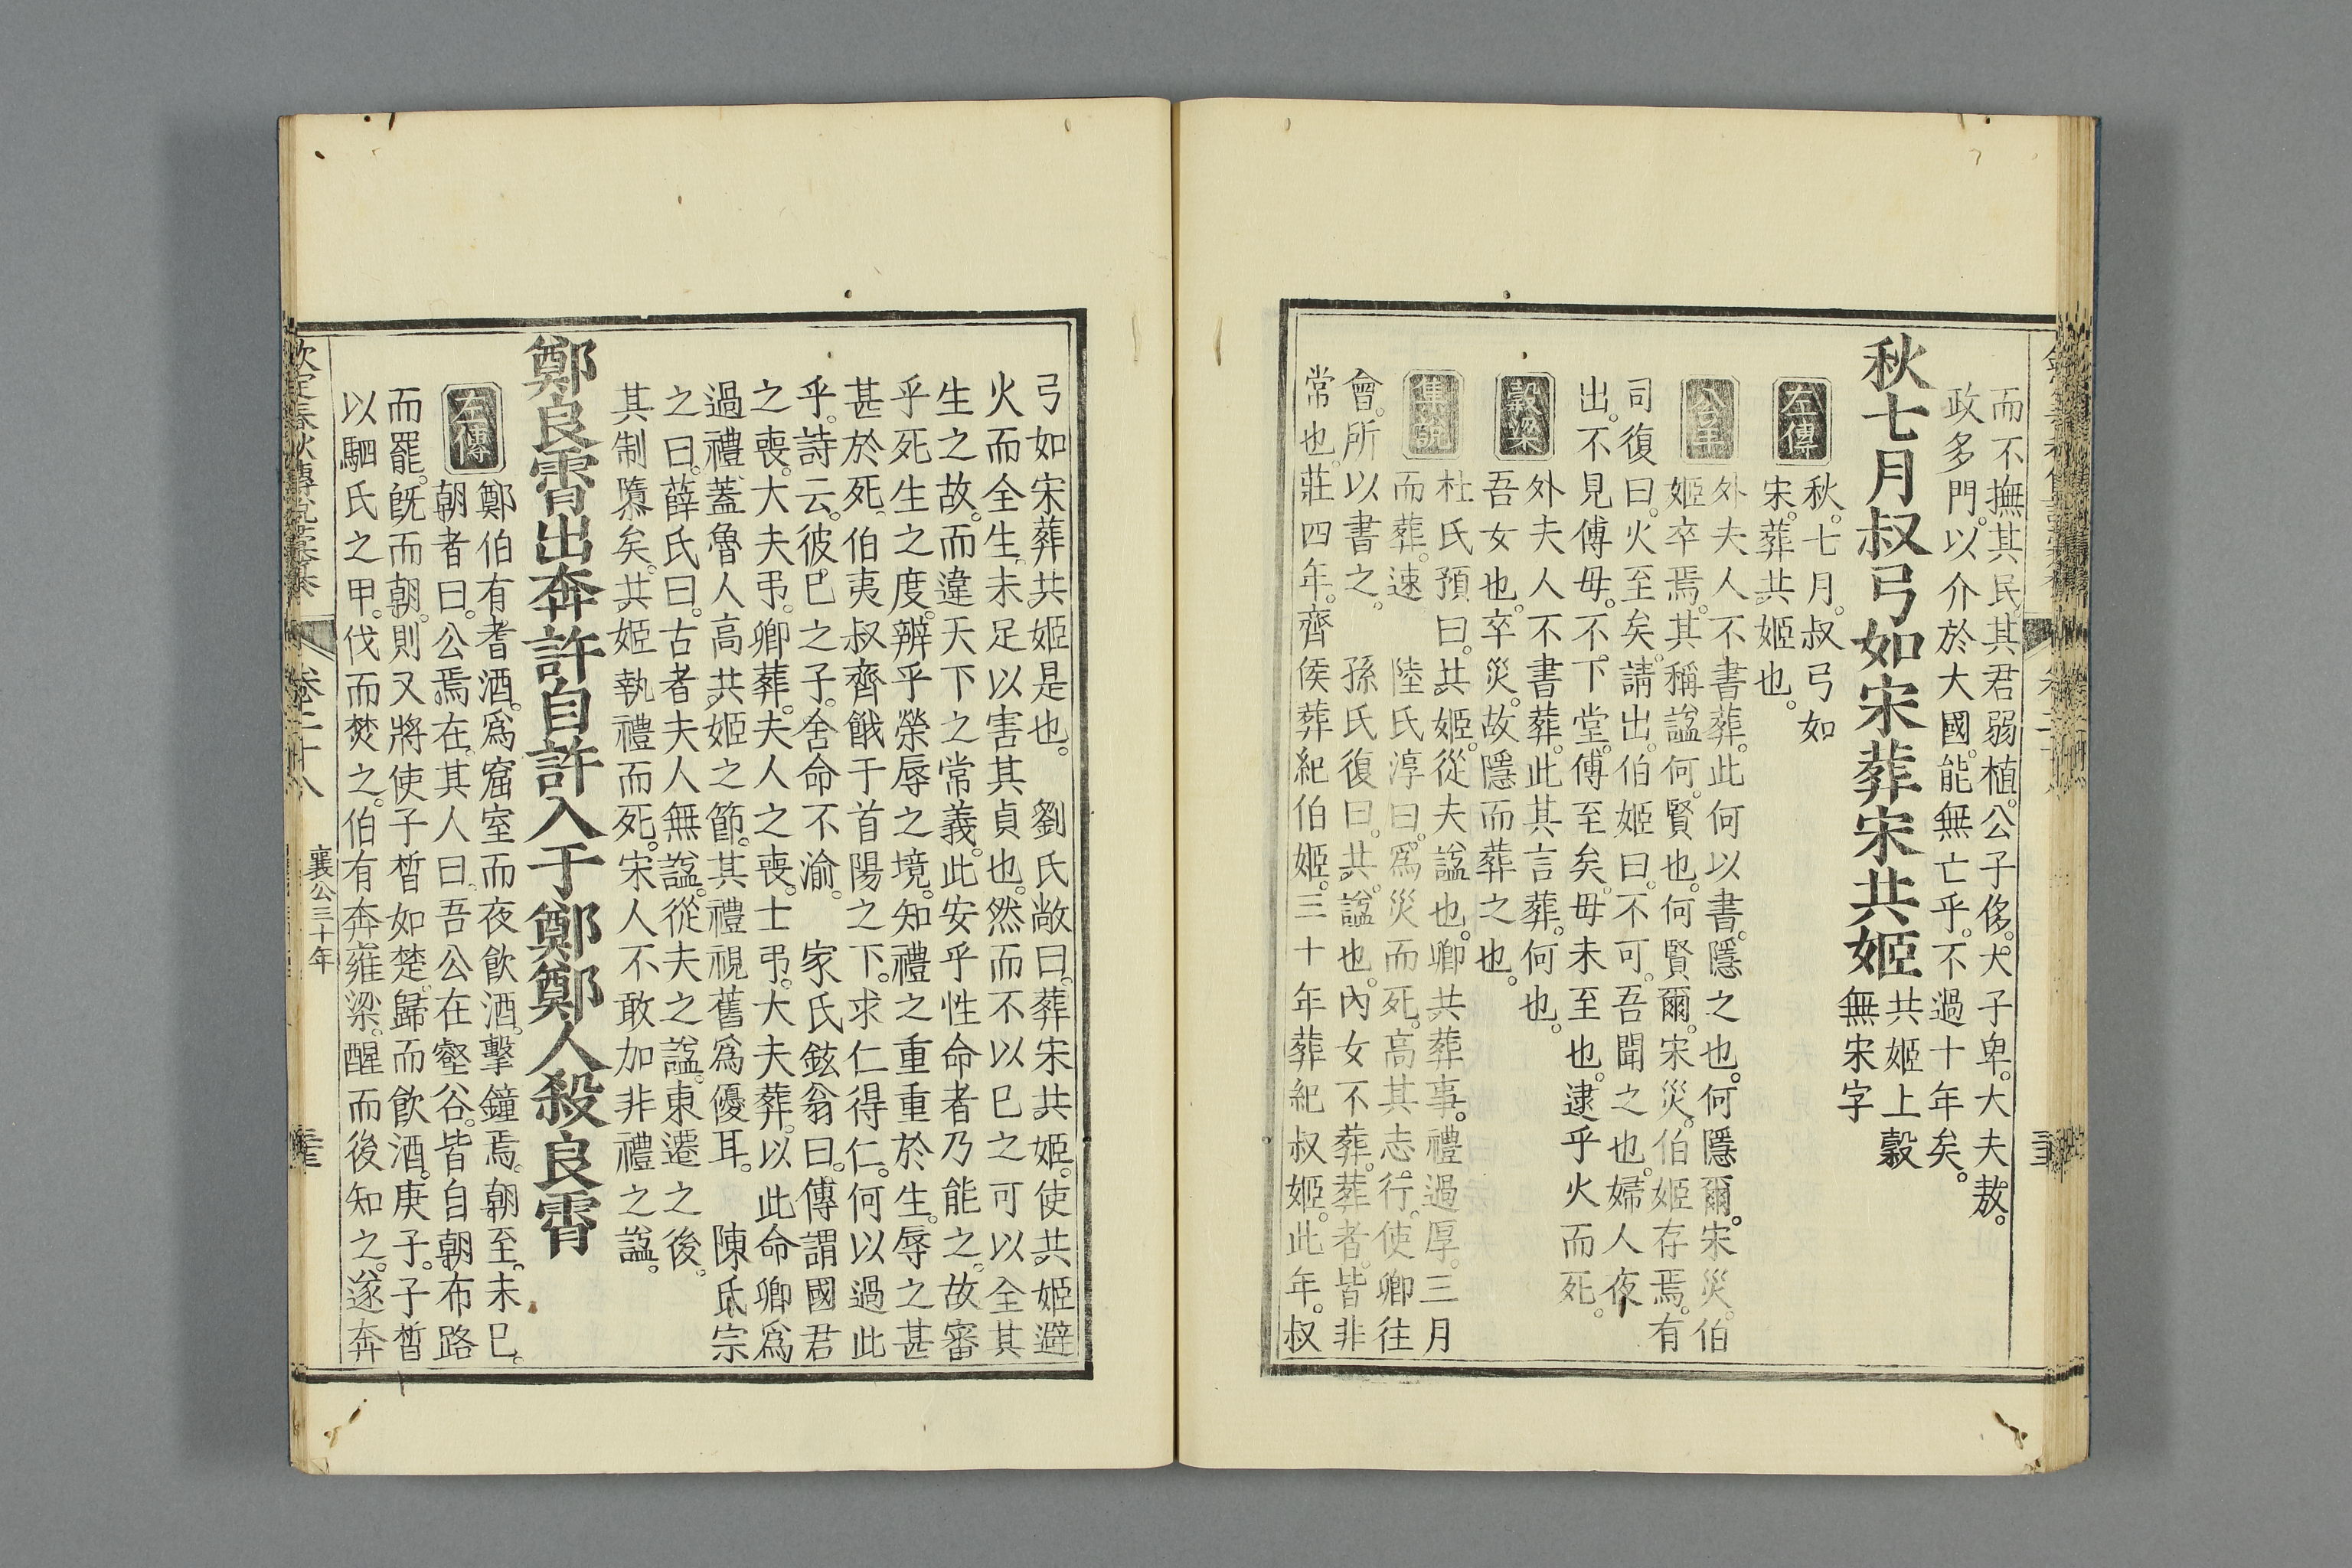 而不撫其民。其君弱植。公子侈。大子卑。大夫敖。
政多門。以介於大國。能無亡乎。不過十年矣。
秋七月叔弓如宋葬宋共姬 共姬上穀
無宋字
左傳 秋。七月。叔弓如
宋。葬共姬也。
公羊 外夫人不書葬。此何以書。隱之也。何隱爾。宋災。伯
姬卒焉。其稱諡何。賢也。何賢爾。宋災。伯姬存焉。有
司復曰。火至矣。請出。伯姬曰。不可。吾聞之也。婦人夜
出。不見傅母。不下堂。傅至矣。母未至也。逮乎火而死。
穀梁 外夫人不書葬。此其言葬。何也。
吾女也。卒災。故隱而葬之也。
集說 杜氏預曰。共姬。從夫諡也。卿共葬事。禮過厚。三月
而葬。速 陸氏淳曰。爲災而死。高其志行。使卿往
會。所以書之。 孫氏復曰。共。諡也。內女不葬。葬者。皆非
常也。莊四年。齊侯葬紀伯姬。三十年葬紀叔姬。此年。叔
弓如宋葬共姬是也。 劉氏敞曰。葬宋共姬。使共姬避
火而全生。未足以害其貞也。然而不以已之可以全其
生之故。而違天下之常義。此安乎性命者乃能之。故審
乎死生之度。辨乎榮辱之境。知禮之重重於生。辱之甚
甚於死。伯夷叔齊餓于首陽之下。求仁得仁。何以過此
乎。詩云。彼已之子。舍命不渝。 家氏鉉翁曰。傳謂國君
之喪。大夫弔。卿葬。夫人之喪。士弔。大夫葬。以此命卿爲
過禮。蓋魯人高共姬之節。其禮視舊爲優耳。 陳氏宗
之曰。薛氏曰。古者夫人無諡。從夫之諡。東遷之後。
其制隳矣。共姬執禮而死。宋人不敢加非禮之諡。
鄭良霄出奔許自許入于鄭鄭人殺良霄
左傳 鄭伯有耆酒。爲窟室而夜飮酒。擊鐘焉。朝至。未已。
朝者曰。公焉在。其人曰。吾公在壑谷。皆自朝布路
而罷。旣而朝。則又將使子晳如楚。歸而飮酒。庚子。子晳
以駟氏之甲。伐而焚之。伯有奔雍梁。醒而後知之。遂奔
欽定春秋傳說彙纂 卷二十八 襄公三十年